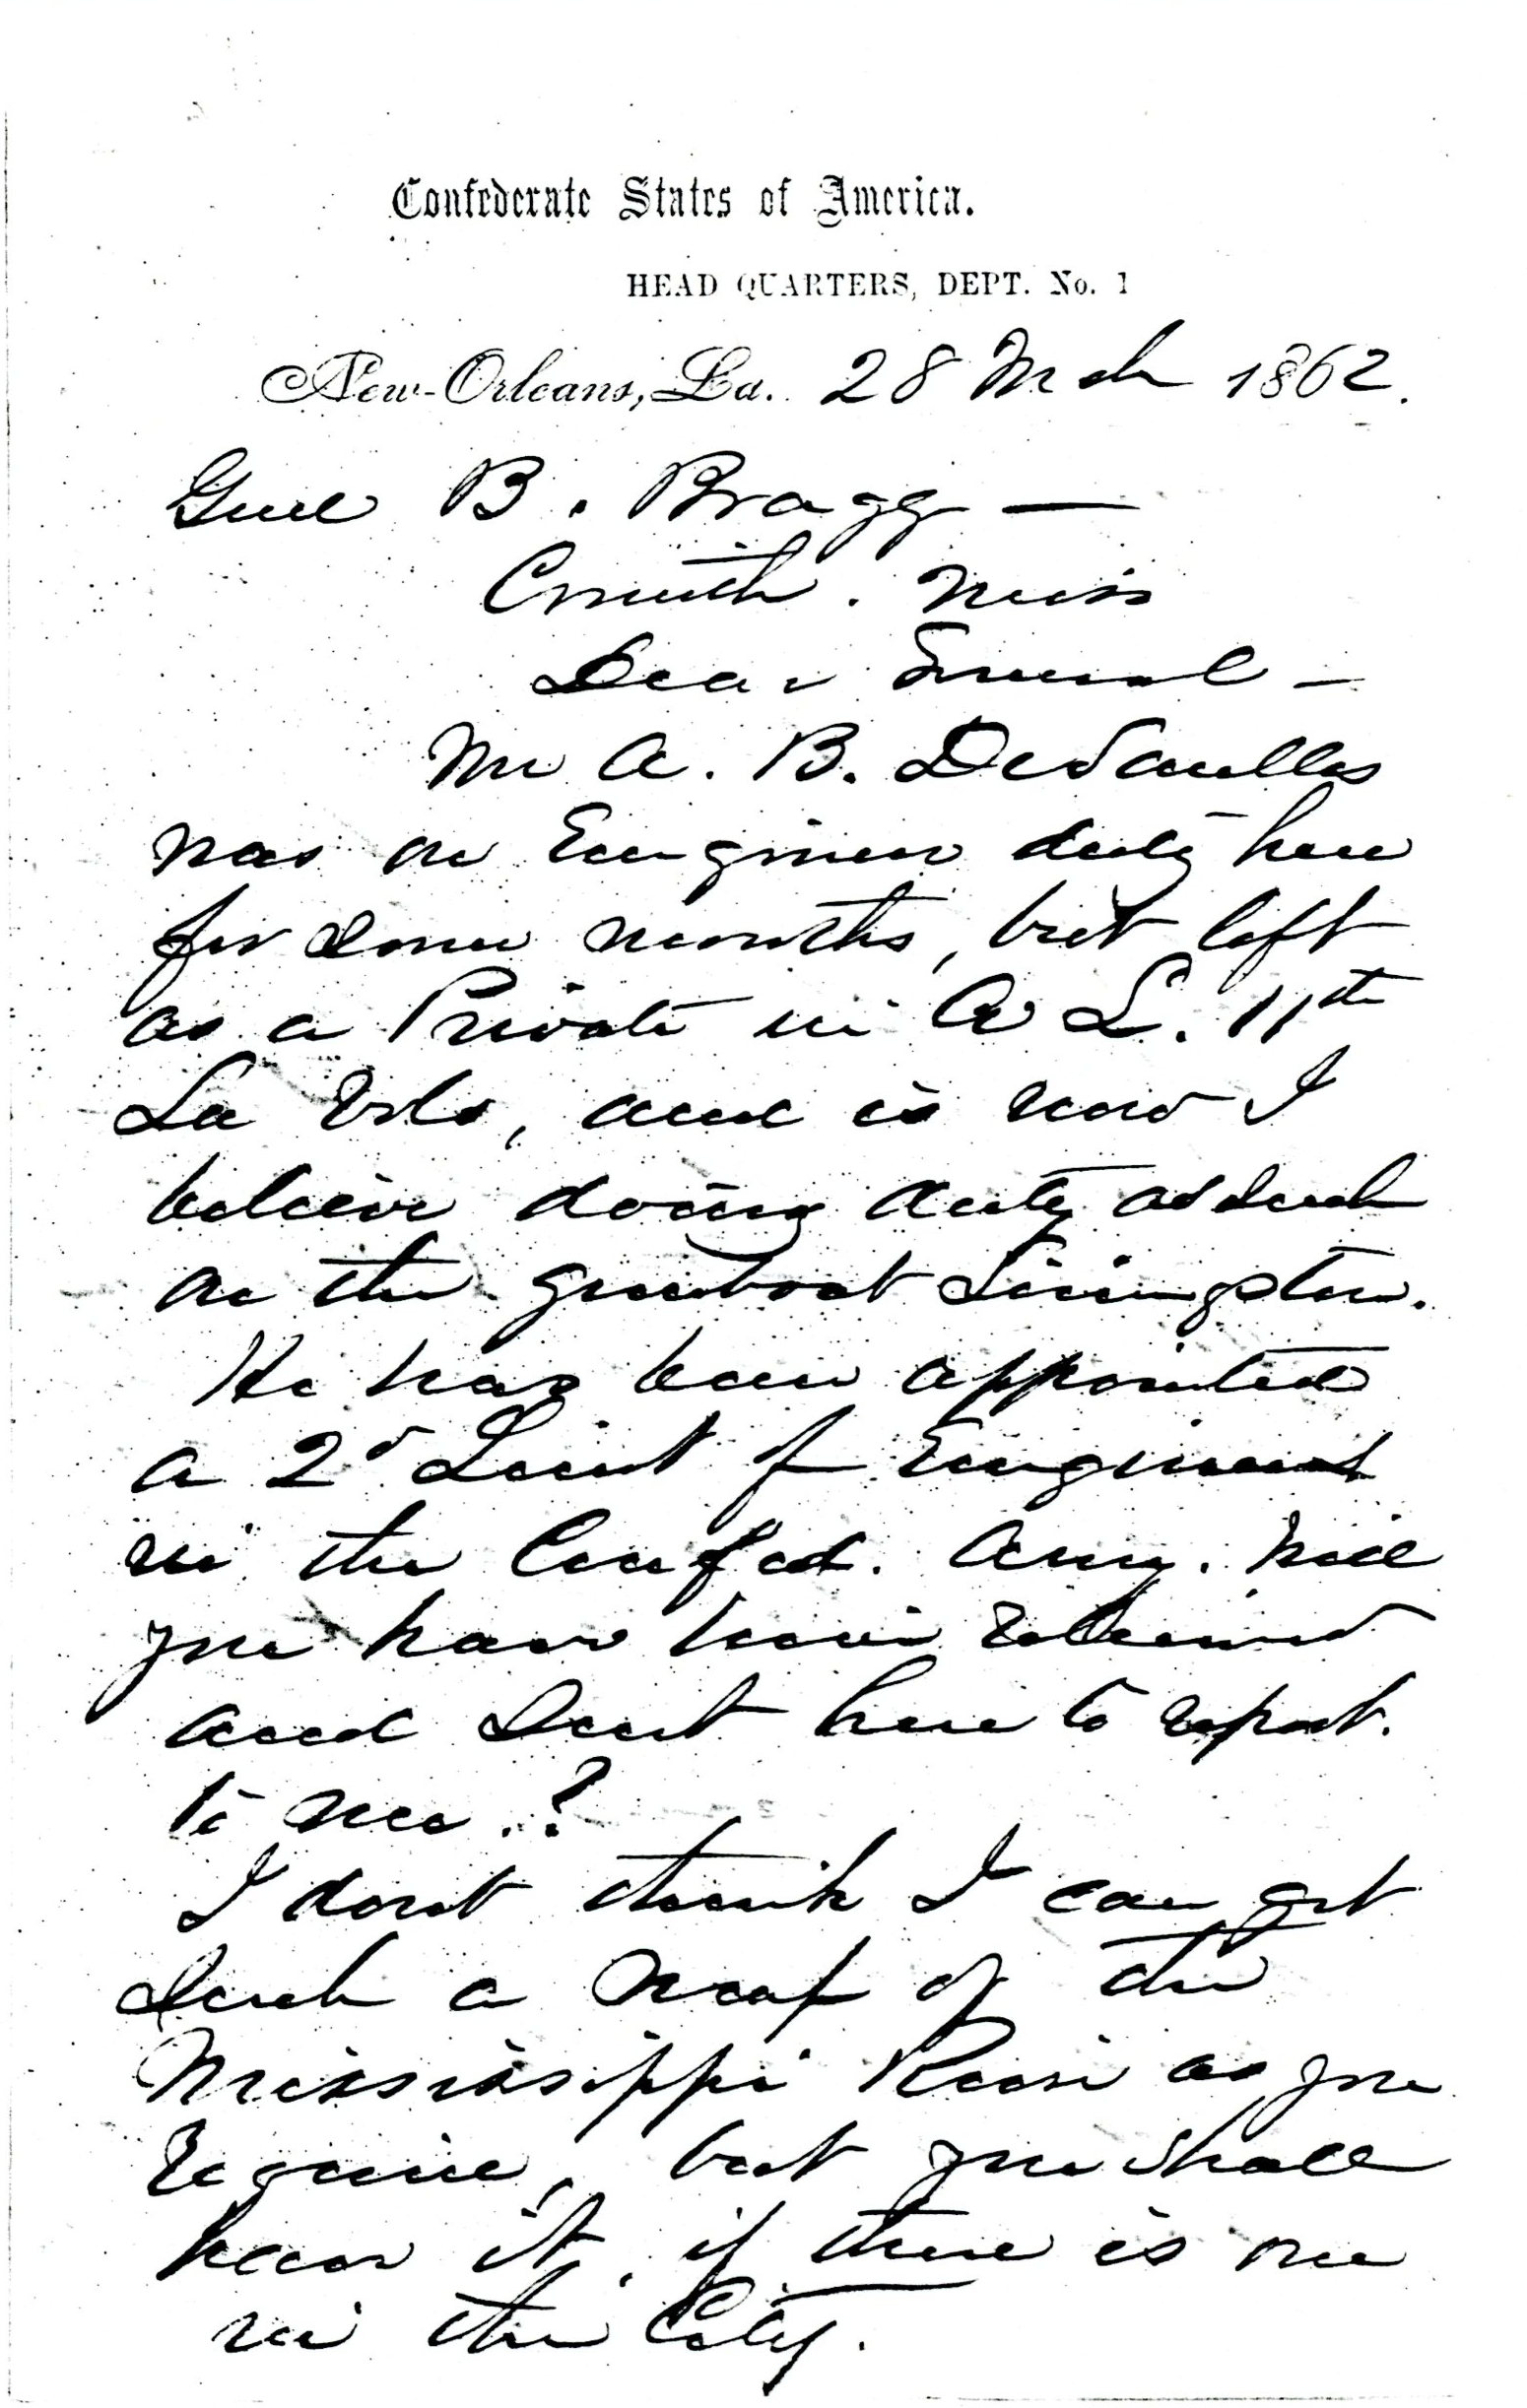 Confederate States of America.
HEAD QUARTERS, DEPT. No. 1
New-Orleans, La. 28 Mch 1862.
Genl B. Bragg —
Corinth. Miss
Dear General —
Mr A. B. DeSaulles
was on Engineer duty here
for some months, but left
as a Private in Co L. 11th
La Vols, and is now I
believe doing duty as such
on the gunboat Livingston.
He has been appointed
a 2d Lieut of Engineers
in the Confed. Army. Will
you have him relieved
and sent here to report
to me.?
I dont think I can get
such a map of the
Mississippi River as you
require, but you shall
have it, if there is one
in the City.